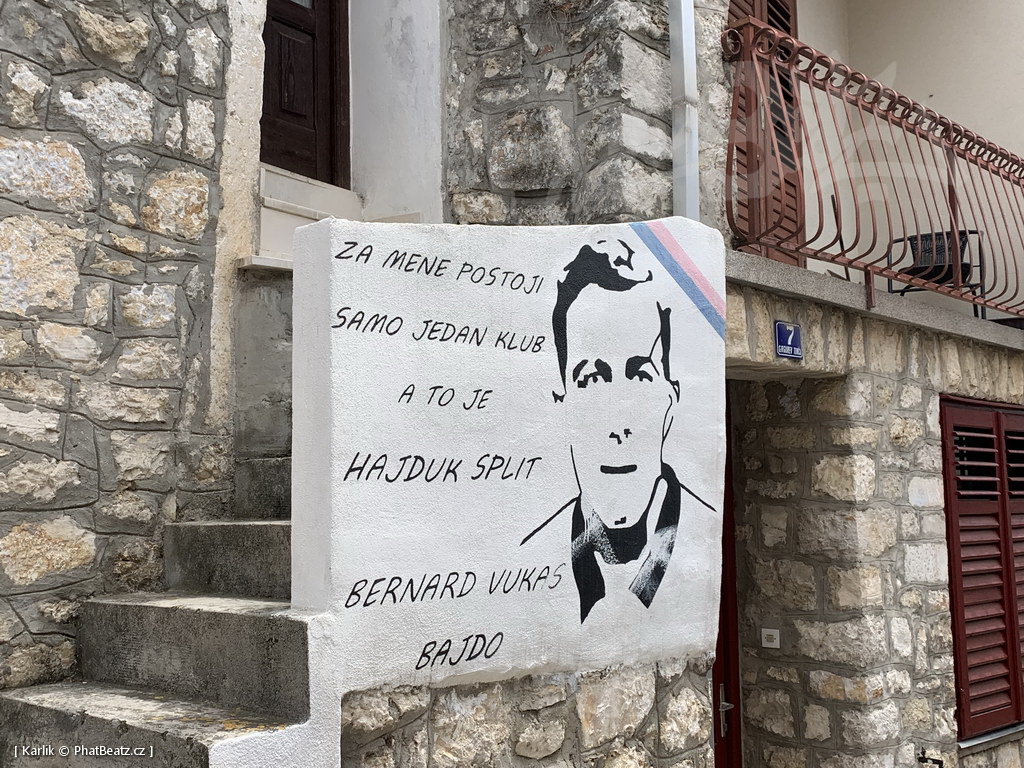 ZA MENE POSTOJI
SAMO JEDAN KLUB
A TO JE
HAJDUK SPLIT
BERNARD VUKAS
BAJDO
7
[ Karlik © PhatBeatz.cz ]